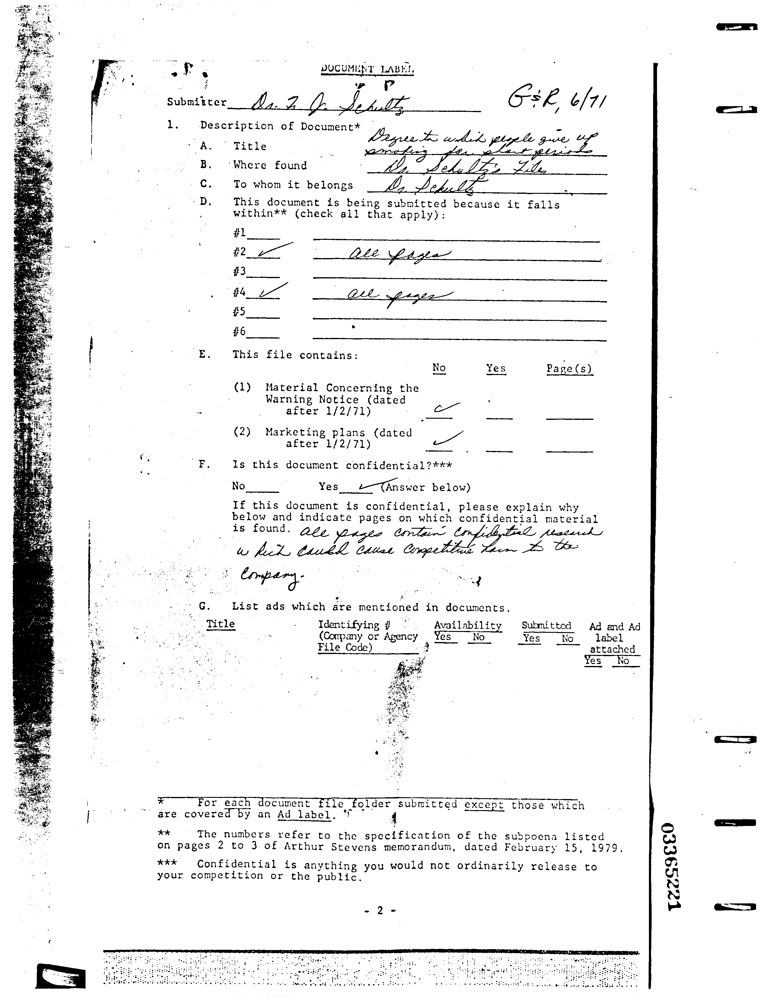 DOCUMENT LABEL
Submitter Dr. F. J. Schultz G&R, 6/71
1. Description of Document*
A. Title Degree to which people give up
smoking for short periods
B. Where found Dr. Schultz's Files
C. To whom it belongs Dr. Schultz
D. This document is being submitted because it falls
within** (check all that apply):
#1
#2 ✓ all pages
#3
#4 ✓ all pages
#5
#6
E. This file contains:
No Yes Page(s)
(1) Material Concerning the
Warning Notice (dated
after 1/2/71) ✓
(2) Marketing plans (dated
after 1/2/71) ✓
F. Is this document confidential?***
No Yes ✓ (Answer below)
If this document is confidential, please explain why
below and indicate pages on which confidential material
is found. All pages contain confidential research
which could cause competitive harm to the
Company.
G. List ads which are mentioned in documents.
Title Identifying # Availability Submitted Ad and Ad
(Company or Agency Yes No Yes No label
File Code) attached
Yes No
* For each document file folder submitted except those which
are covered by an Ad label.
** The numbers refer to the specification of the subpoena listed
on pages 2 to 3 of Arthur Stevens memorandum, dated February 15, 1979.
*** Confidential is anything you would not ordinarily release to
your competition or the public.
- 2 -
03365221